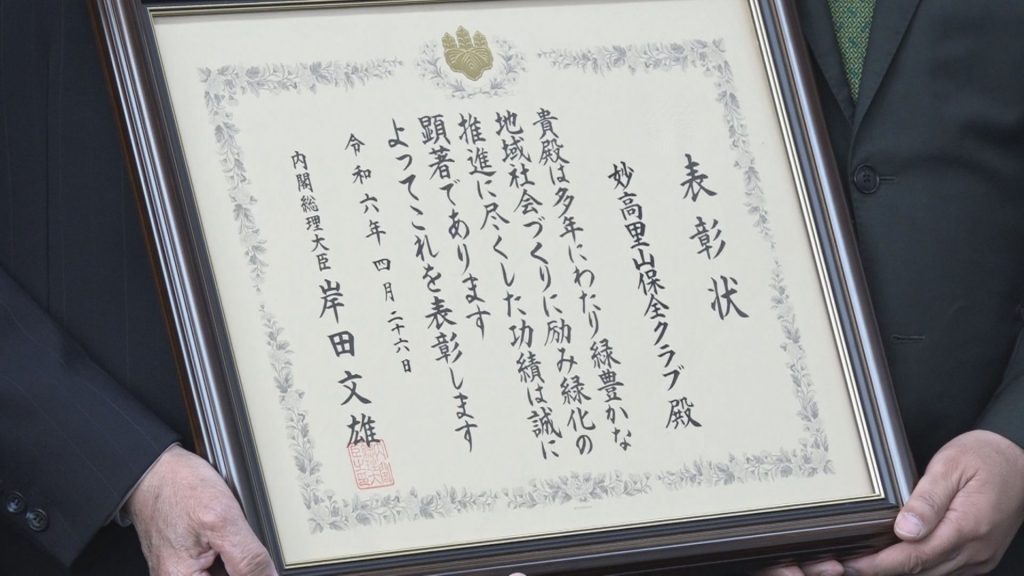 表彰状
妙高里山保全クラブ 殿
貴殿は多年にわたり緑豊かな
地域社会づくりに励み緑化の
推進に尽くした功績は誠に
顕著であります
よってこれを表彰します
令和六年四月二十六日
内閣総理大臣 岸田文雄